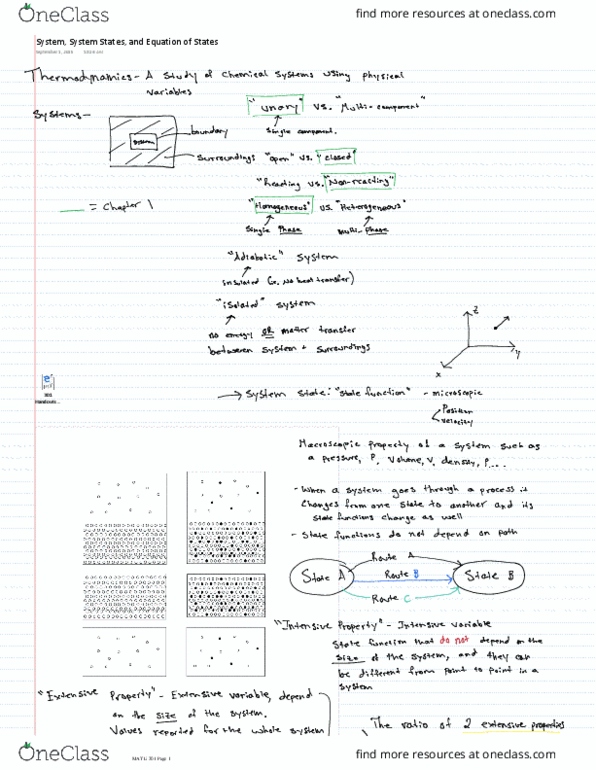 OneClass
find more resources at oneclass.com
System, System States, and Equation of States
Thermodynamics - A Study of Chemical Systems using physical
variables
Systems -
"unary" vs. "Multi-component"
single component.
boundary
System
Surroundings
"open" vs. "closed"
"Reacting vs. "Non-reacting"
= Chapter 1
"Homogeneous" vs. "Heterogeneous"
Single Phase
multi-phase
"Adiabatic" system
insulated (i.e. no heat transfer)
"isolated" system
no energy OR matter transfer
between system + surroundings
z
y
x
→ System State: "State function" - microscopic
Position
velocity
Macroscopic property of a system such as
a pressure, P, Volume, V, density, ρ...
- When a system goes through a process it
changes from one state to another and its
state functions change as well
- State functions do not depend on path
Route A
State A
Route B
State B
Route C
"Intensive Property" - Intensive variable
State function that do not depend on the
size of the system, and they can
be different from point to point in a
system
"Extensive Property" - Extensive variable, depend
on the size of the system.
Values reported for the whole system
The ratio of 2 extensive properties
OneClass
find more resources at oneclass.com